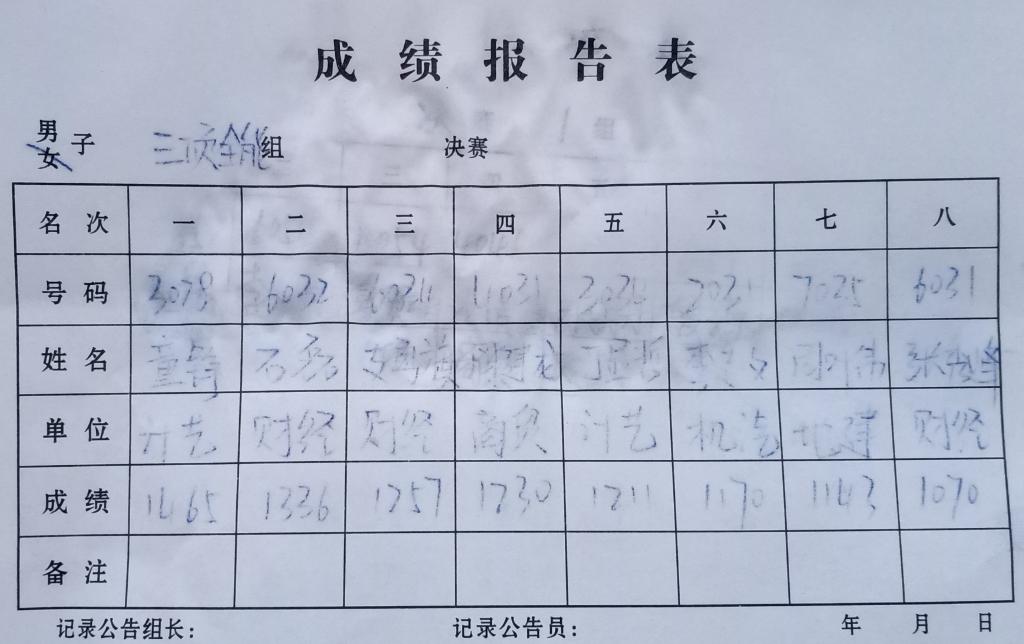 成绩报告表
男
女 子 三项全能 组 决赛
名次 一 二 三 四 五 六 七 八
号码 3079 6032 6034 11031 3034 7025 6031
姓名 童锋 石磊
单位 计艺 财经 财经 商贸 计艺 机汽 地建 财经
成绩 1465 1336 1257 1230 1211 1170 1143 1070
备注
记录公告组长： 记录公告员： 年 月 日